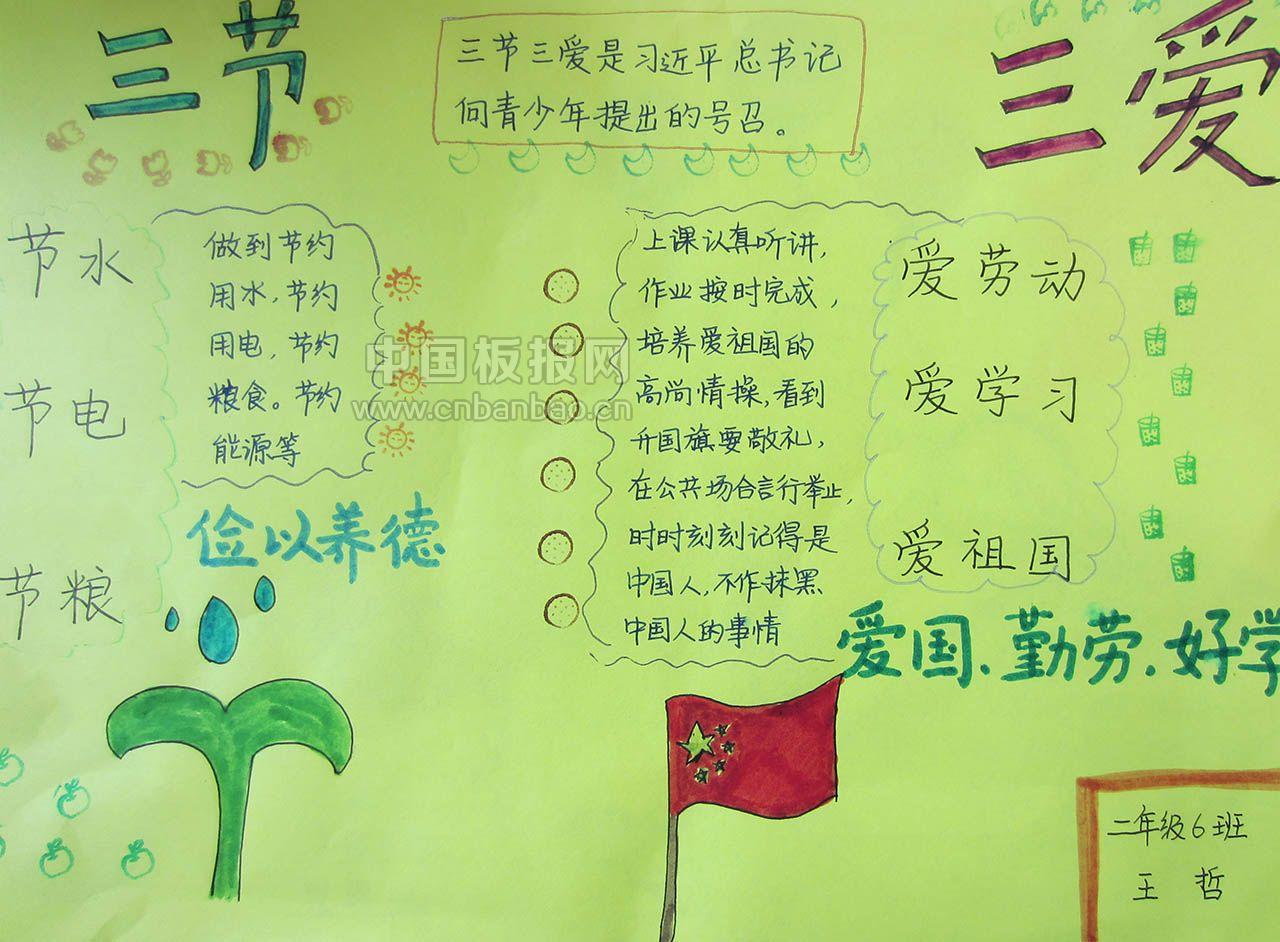 三节
三爱
三节三爱是习近平总书记
向青少年提出的号召。
节水
节电
节粮
做到节约
用水，节约
用电，节约
粮食。节约
能源等
俭以养德
上课认真听讲，
作业按时完成，
培养爱祖国的
高尚情操，看到
升国旗要敬礼，
在公共场合言行举止，
时时刻刻记得是
中国人，不作抹黑
中国人的事情
爱劳动
爱学习
爱祖国
爱国、勤劳、好学
二年级6班
王哲
中国板报网
www.cnbanbao.cn